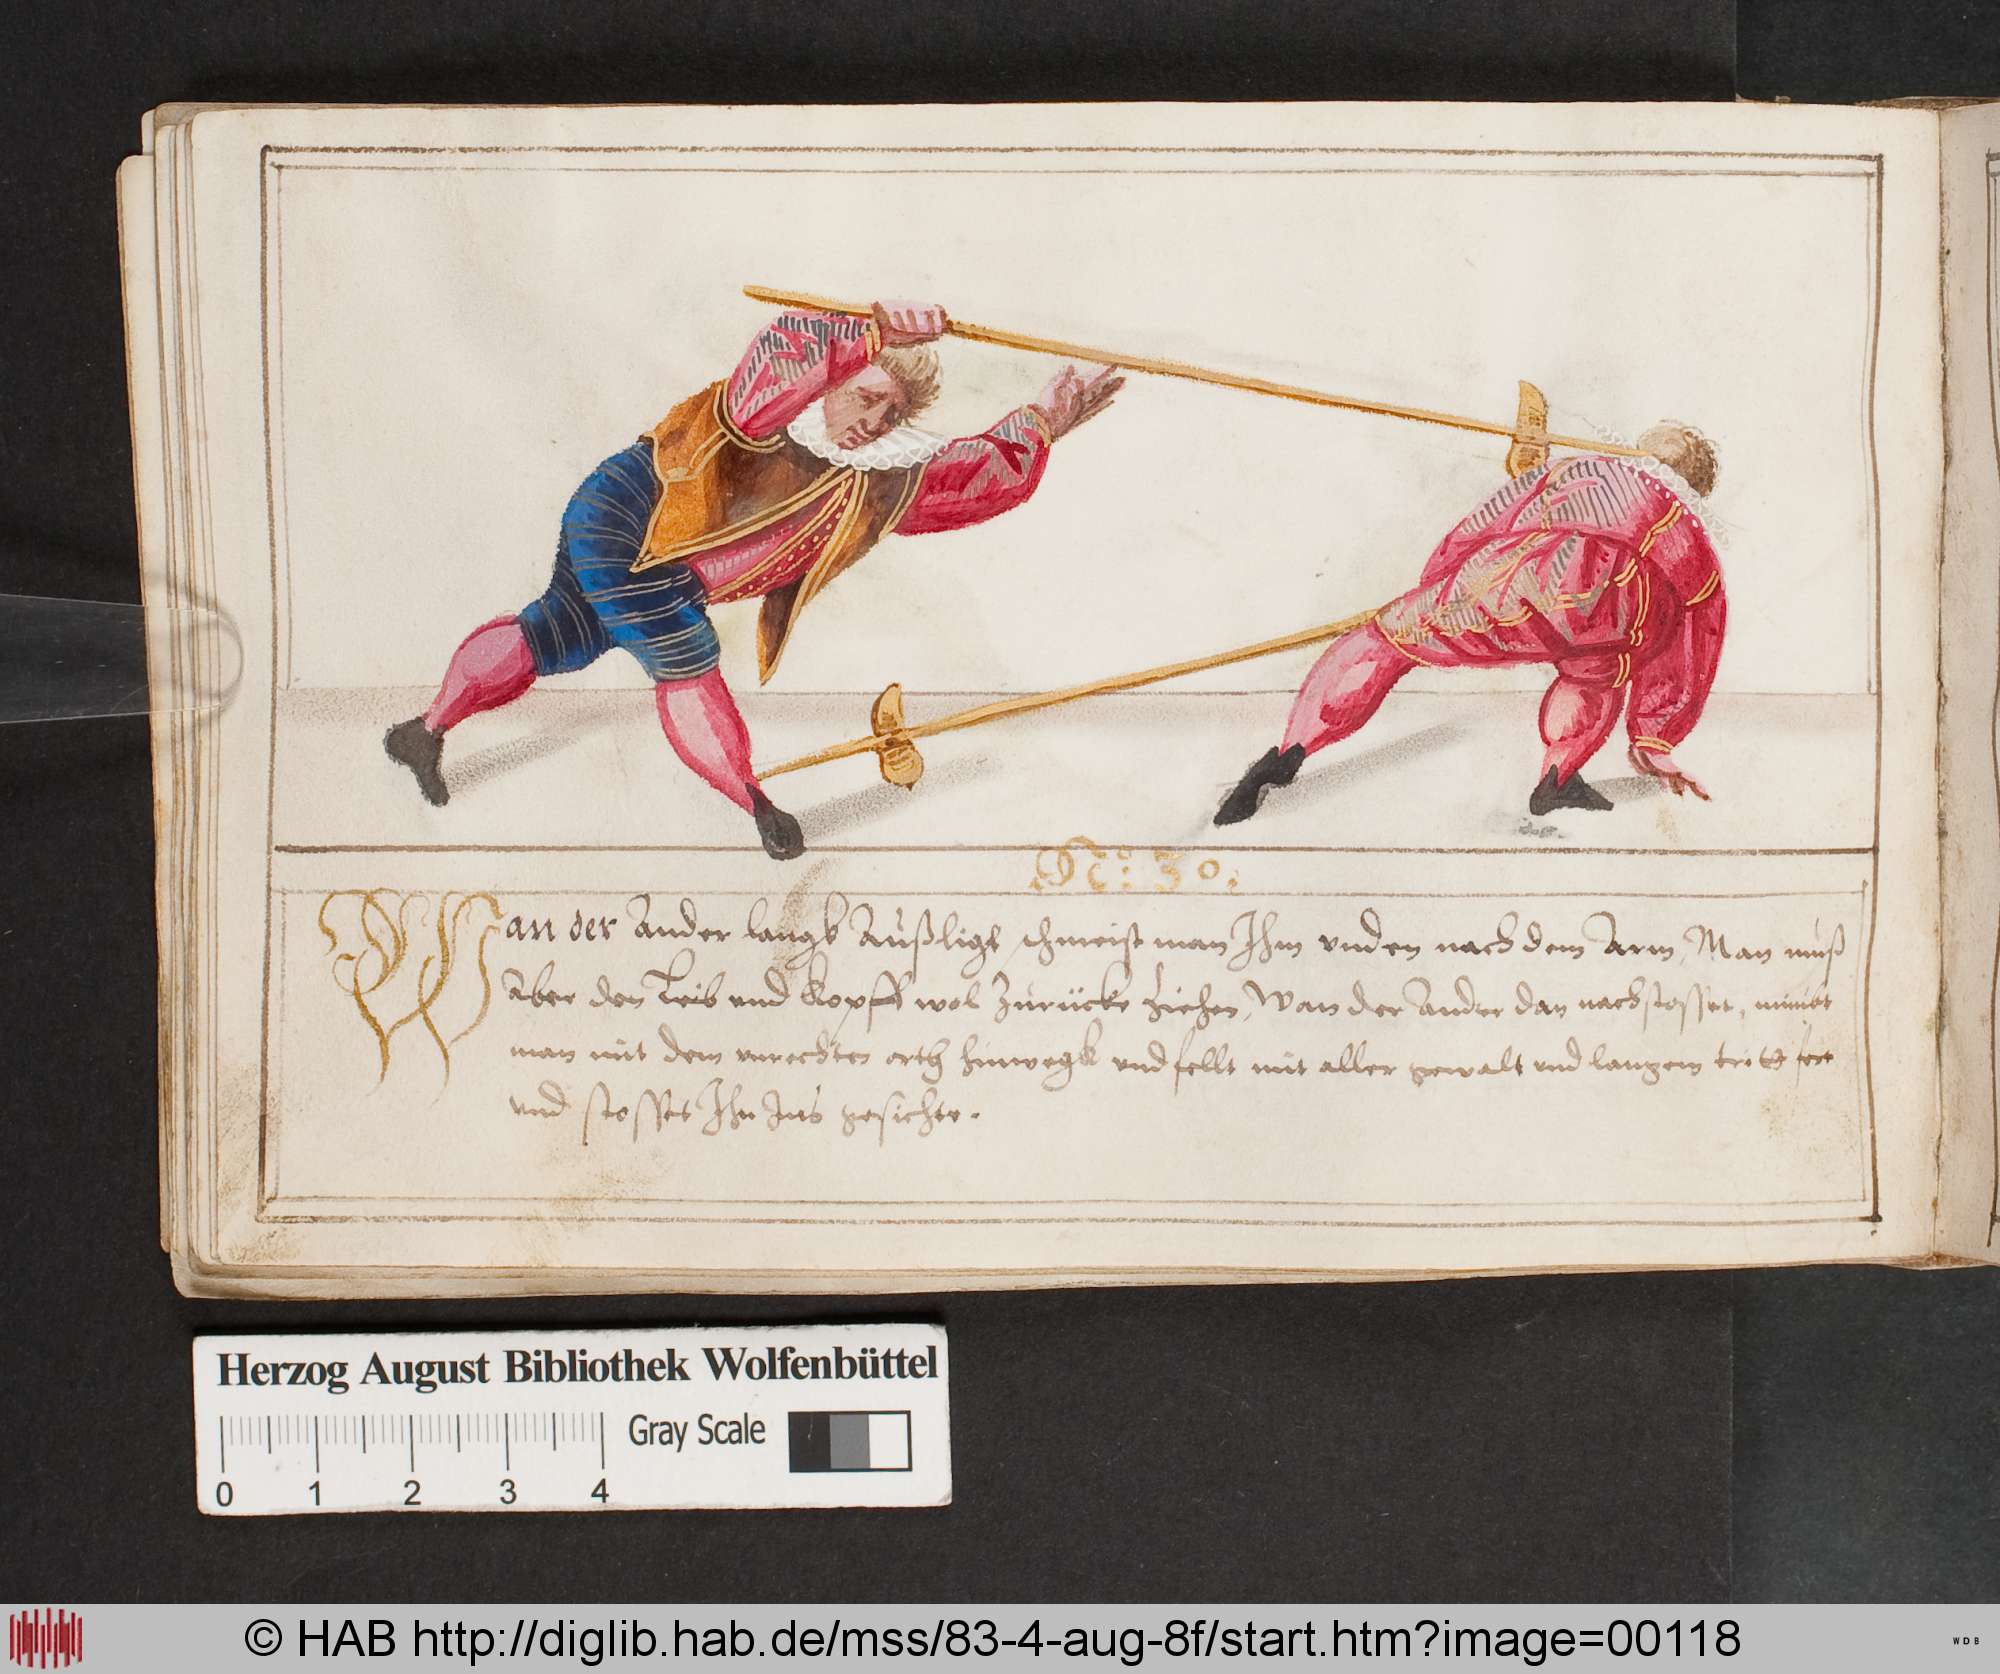 N° 30.
Wan der Ander langk Außligt schmeist man Ihm vnden nach dem Arm, Man muß
Aber den Leib vnd Kopff wol Zurücke Ziehen, Wan der Ander dan nachstosset, nimbt
man mit dem vnrechten orth hinwegk vnd fellt mit aller gewalt vnd langem tritt fort
vnd stosset Ihn Ins gesichte.
Herzog August Bibliothek Wolfenbüttel
Gray Scale
0 1 2 3 4
© HAB http://diglib.hab.de/mss/83-4-aug-8f/start.htm?image=00118
WDB